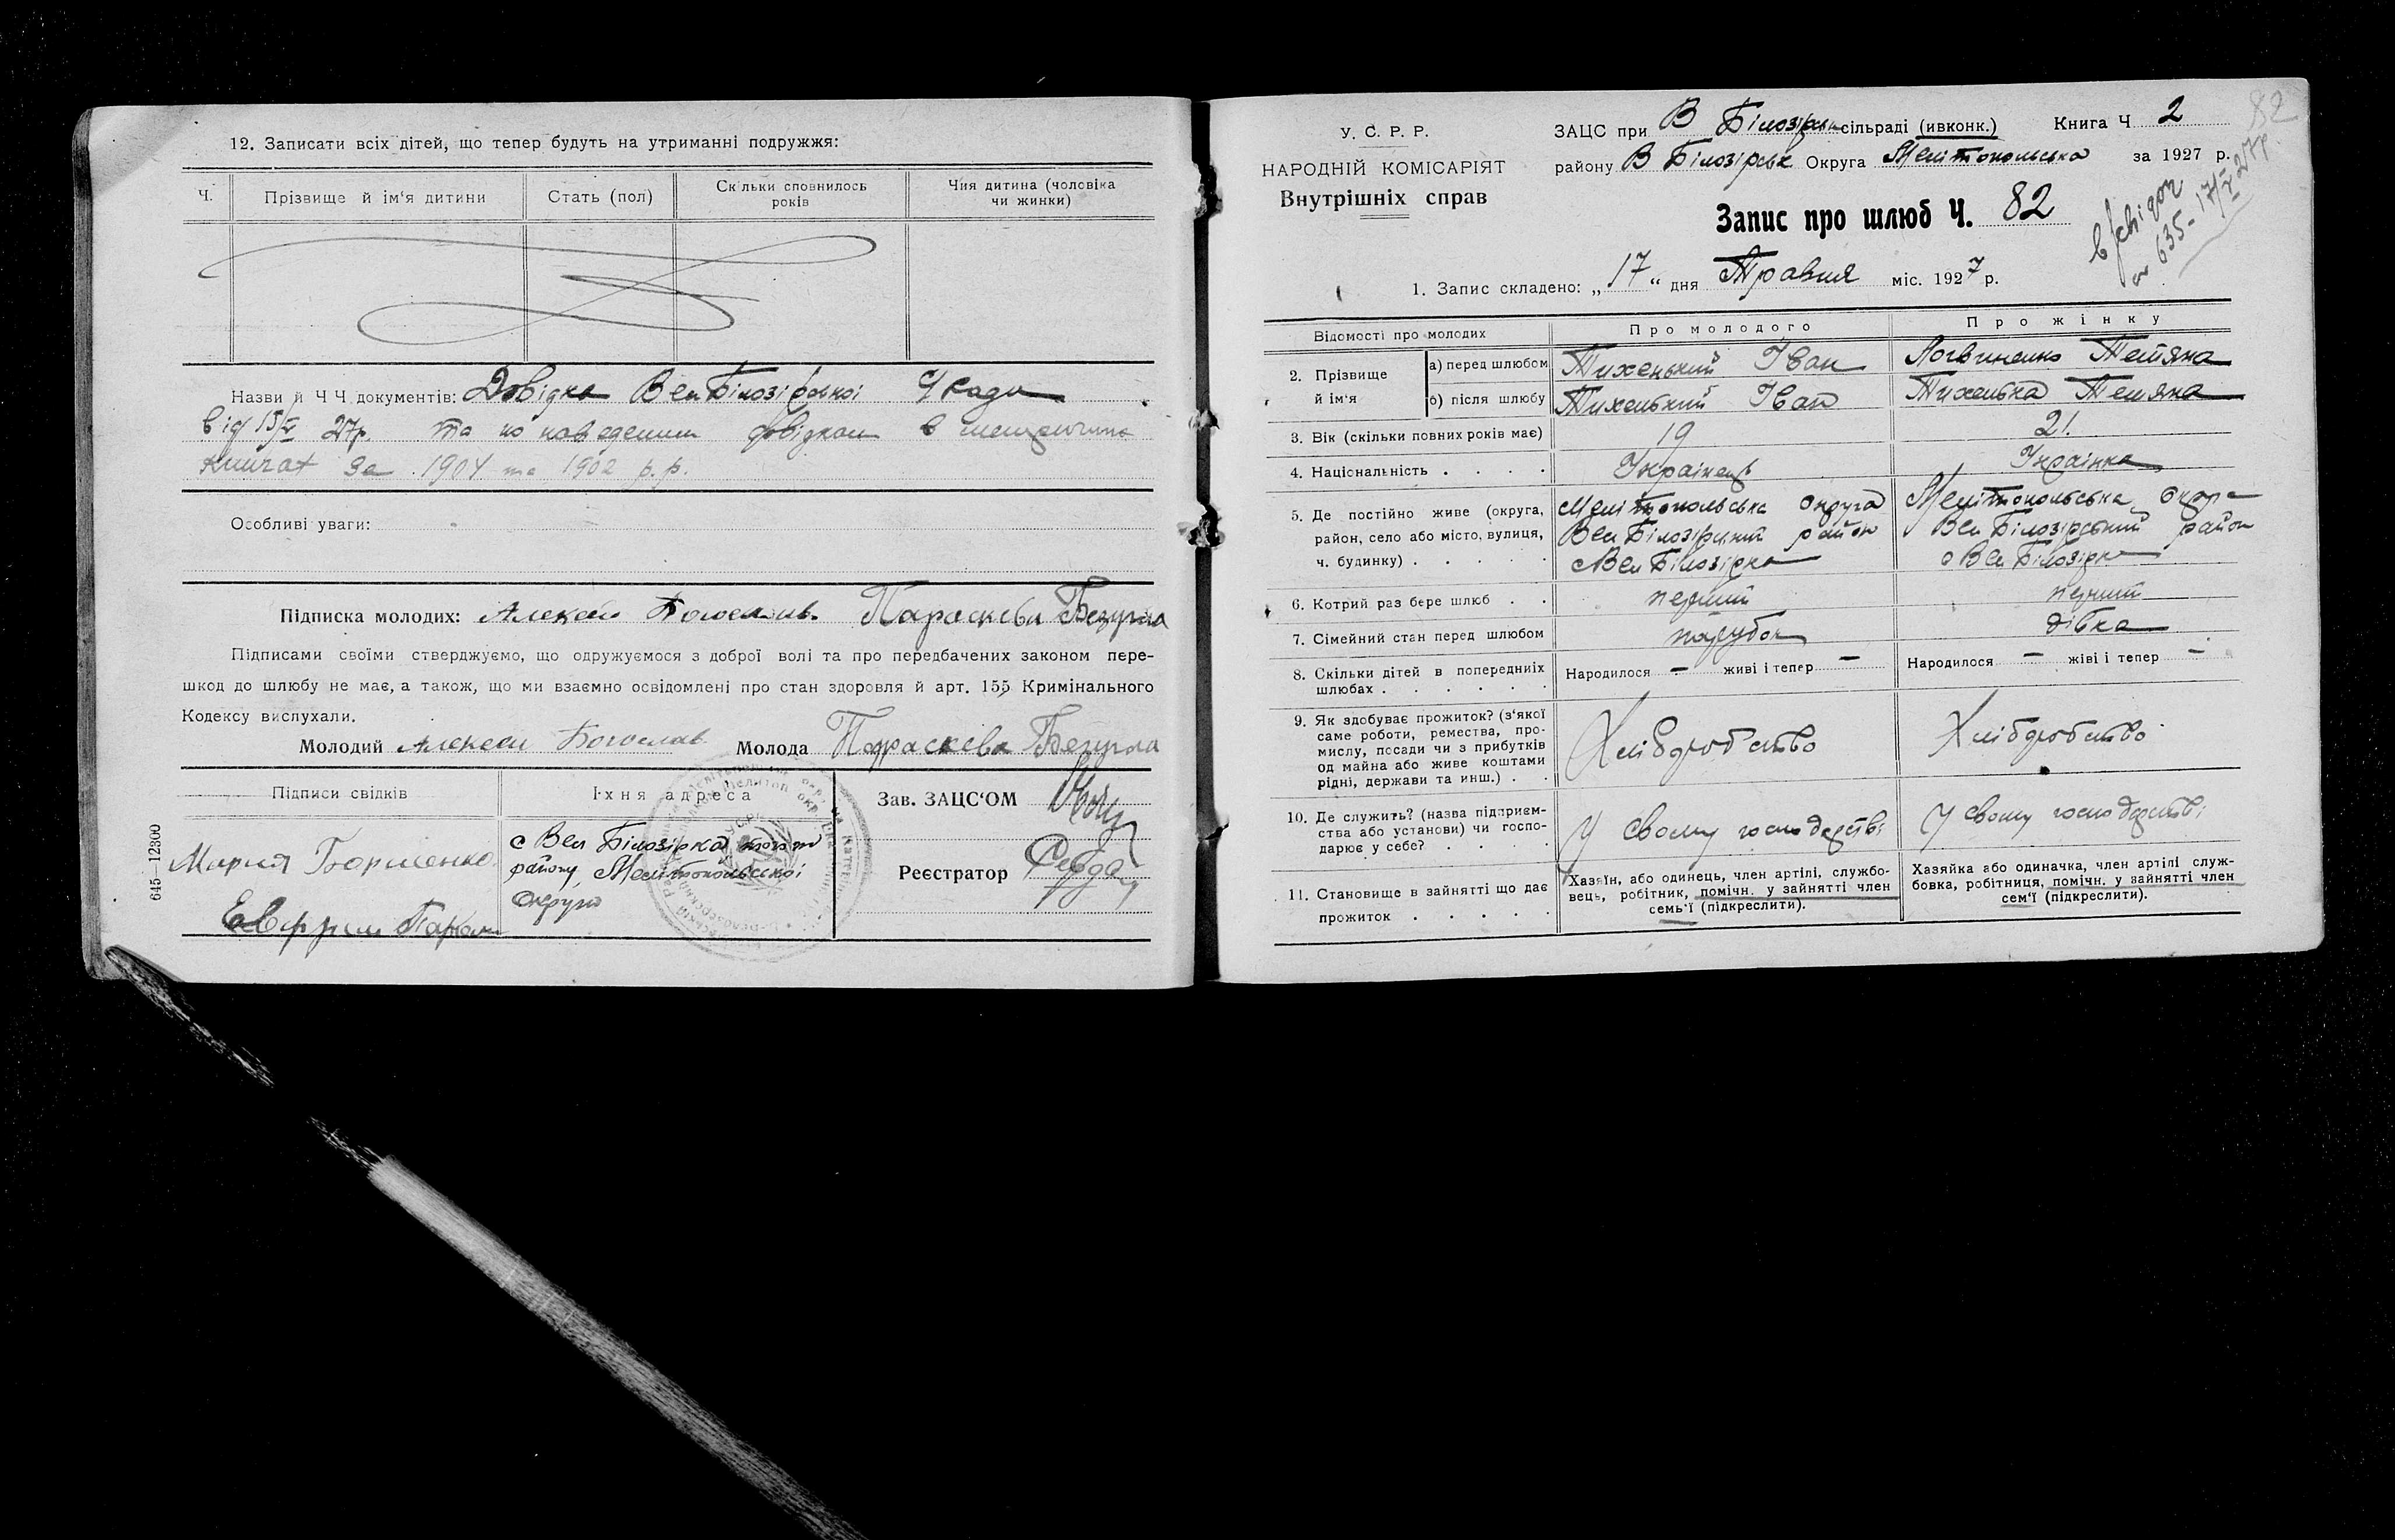 12. Записати всіх дітей, що тепер будуть на утриманні подружжя:
Ч.
Прізвище й ім'я дитини
Стать (пол)
Скільки сповнилось років
Чия дитина (чоловіка чи жинки)
Назви й Ч Ч документів: Довідка Вел Білозірської
від 15/V 27р. та по наведеним довідкам в
книгах за 1904 та 1902 р.р.
Особливі уваги:
Підписка молодих: Алексей Богослав Параскева Безугла
Підписами своїми стверджуємо, що одружуємося з доброї волі та про передбачених законом пере-
шкод до шлюбу не має, а також, що ми взаємно освідомлені про стан здоровля й арт. 155 Кримінального
Кодексу вислухали.
Молодий Алексей Богослав Молода Параскева Безугла
Підписи свідків
Їхня адреса
Мария Борисенко
с Вел Білозірка того ж
району Мелітопольської
округи
Зав. ЗАЦС'ОМ
Реєстратор
645—12300
У. С. Р. Р.
НАРОДНІЙ КОМІСАРІЯТ
Внутрішніх справ
ЗАЦС при В Білозірськ сільраді (ивконк.) Книга Ч 2
82
району В Білозірськ Округа Мелітопольська за 1927 р.
Запис про шлюб Ч. 82
635 - 17/V 27р.
1. Запис складено: „17“ дня Травня міс. 1927 р.
Відомості про молодих
Про молодого
Про жінку
2. Прізвище й ім'я
а) перед шлюбом
Тихенький Іван
Логвиненко Тетяна
б) після шлюбу
Тихенький Іван
Тихенька Тетяна
3. Вік (скільки повних років має)
19
21.
4. Національність . . . .
Українець
Українка
5. Де постійно живе (округа,
район, село або місто, вулиця,
ч. будинку) . . . . .
Мелітопольська округа
Вел Білозірський район
с Вел Білозірка
Мелітопольська округа
Вел Білозірський район
с Вел Білозірка
6. Котрий раз бере шлюб . .
перший
перший
7. Сімейний стан перед шлюбом
парубок
дівка
8. Скільки дітей в попередниіх
шлюбах . . . . . .
Народилося — живі і тепер —
Народилося — жіві і тепер —
9. Як здобуває прожиток? (з'якої
саме роботи, ремества, про-
мислу, посади чи з прибутків
од майна або живе коштами
рідні, держави та инш.) . .
Хлібдробство
Хлібдробство
10. Де служить? (назва підприєм-
ства або установи) чи госпо-
дарює у себе? . . . .
У свому господарстві
У свому господарстві
11. Становище в зайнятті що дає
прожиток . . . . .
Хазяїн, або одинець, член артілі, службо-
вець, робітник, помічн. у зайнятті член
семь'ї (підкреслити).
Хазяйка або одиначка, член артілі служ-
бовка, робітниця, помічн. у зайнятті член
сем'ї (підкреслити).